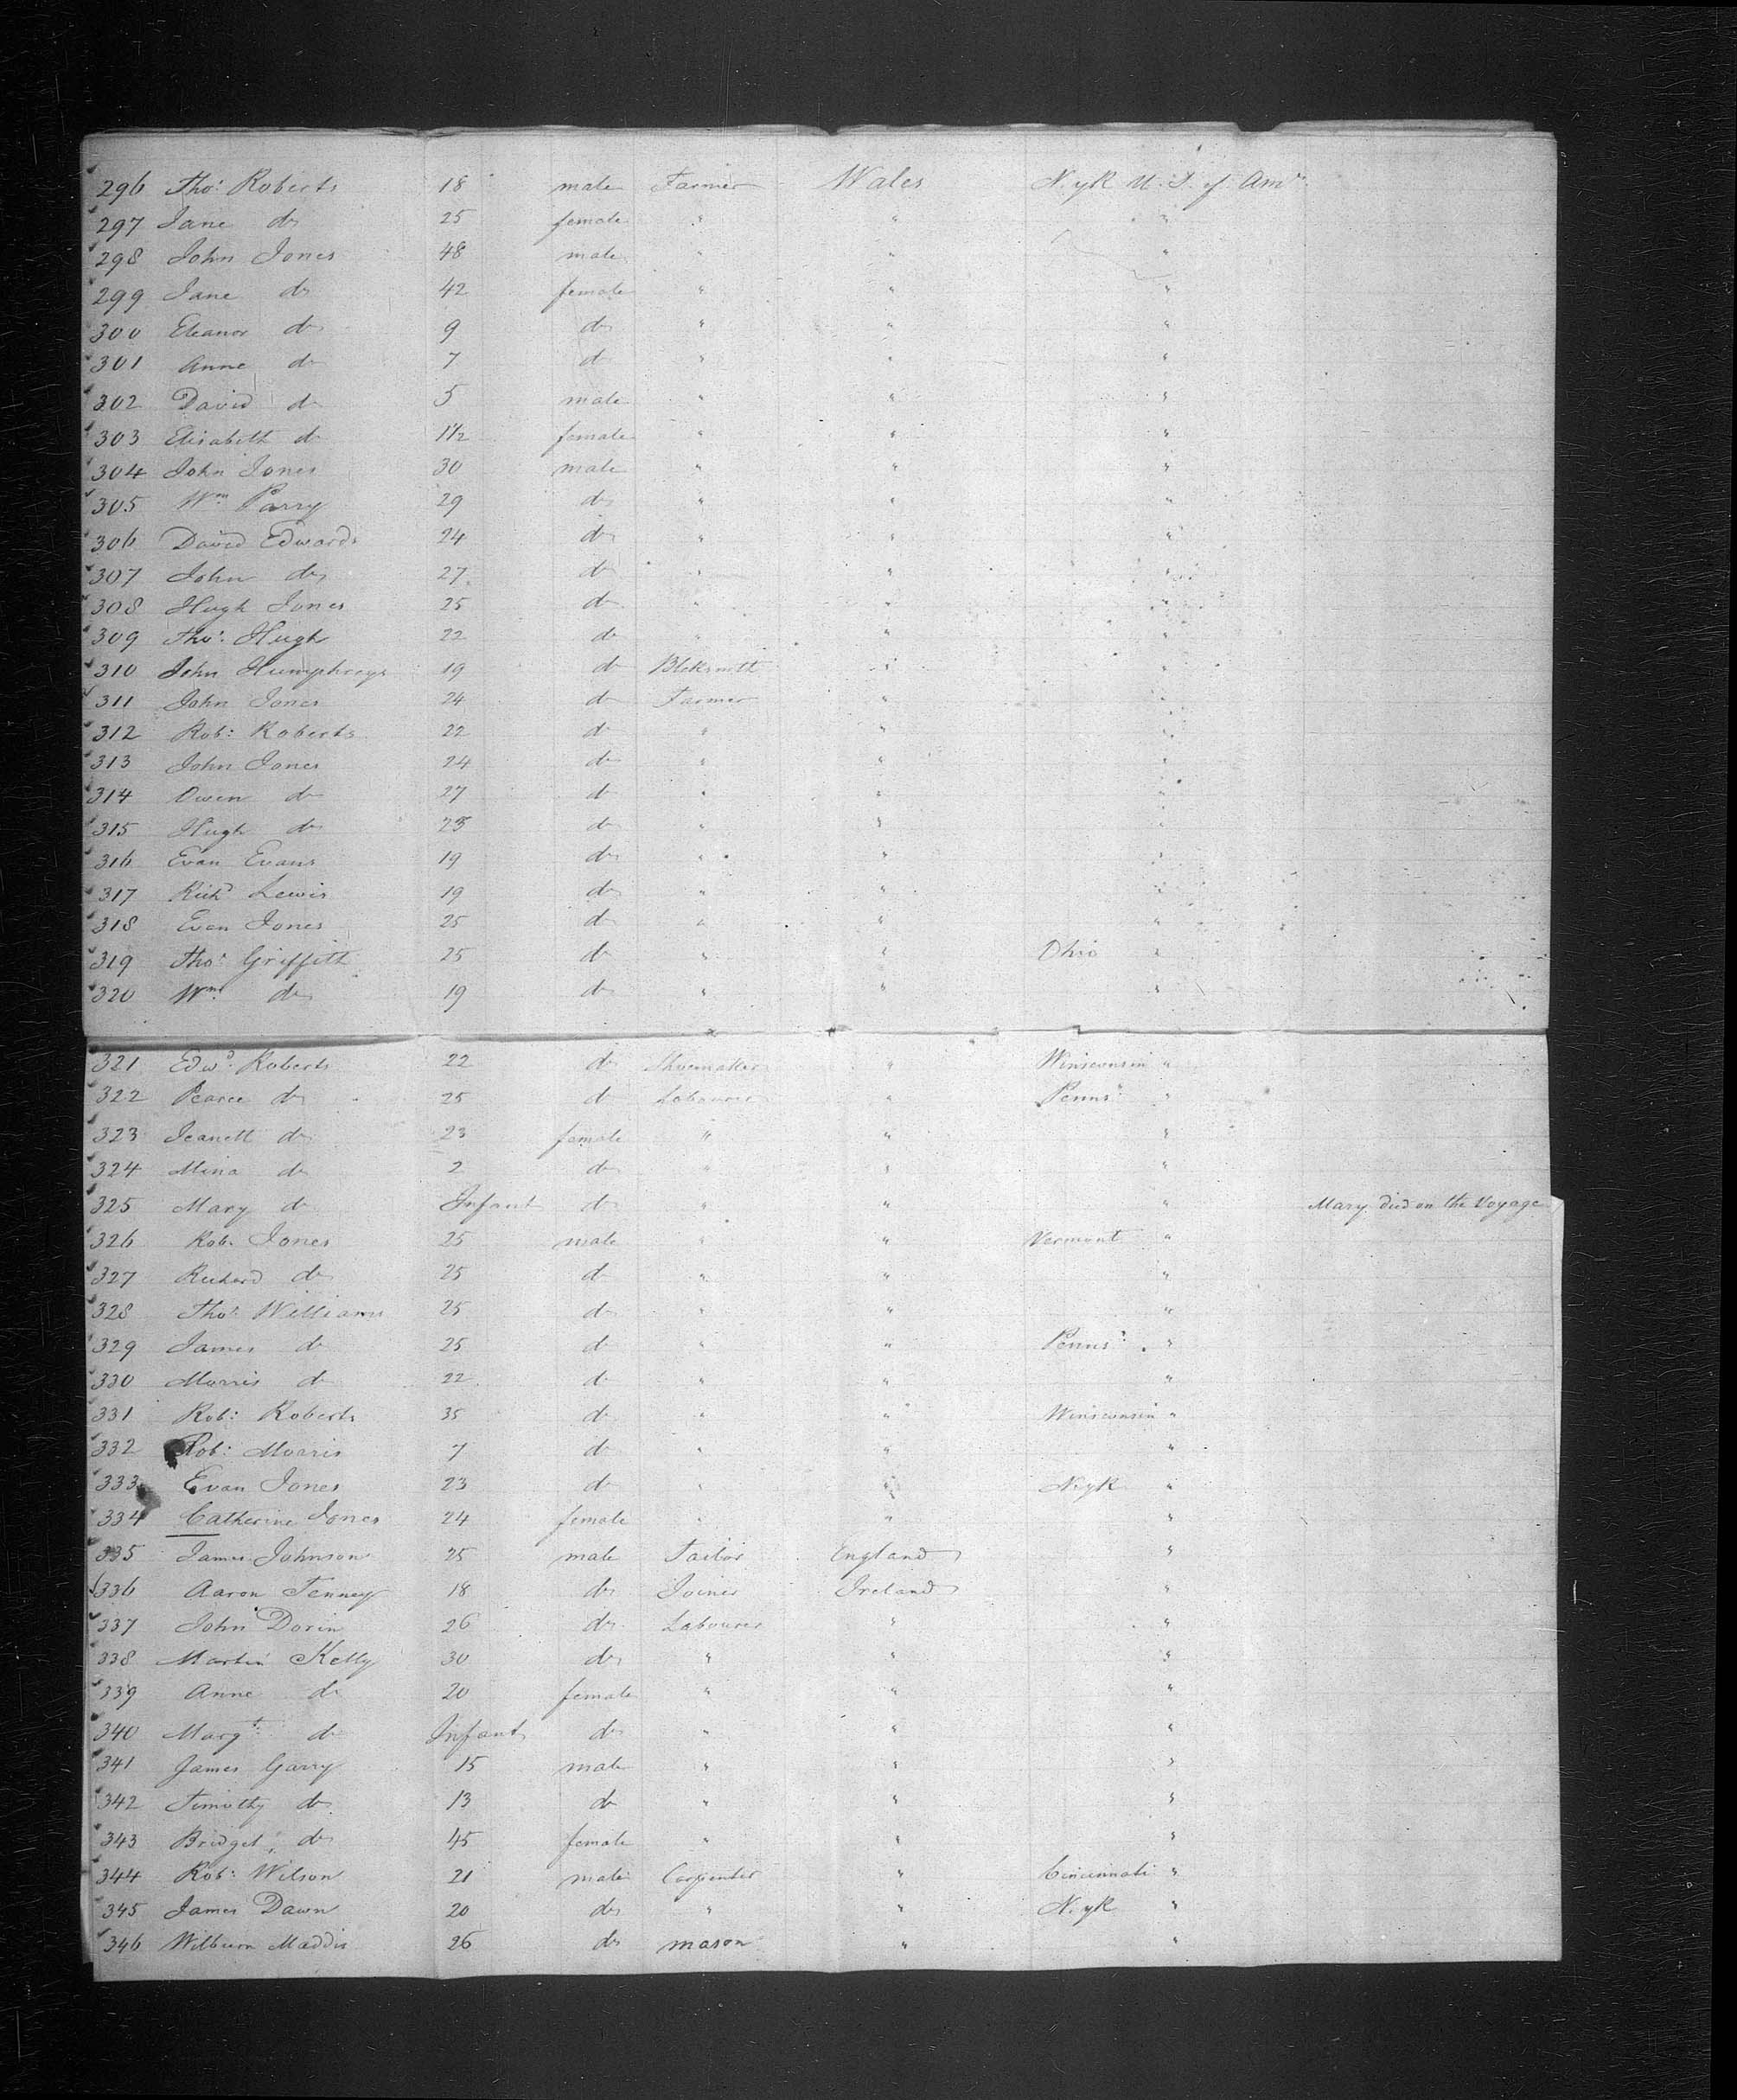 296 Thos: Roberts 18 male Farmer Wales N.yk U.S. of Ama.
297 Jane do 25 female " " "
298 John Jones 48 male " " "
299 Jane do 42 female " " "
300 Eleanor do 9 do " " "
301 Anne do 7 do " " "
302 David do 5 male " " "
303 Elisabeth do 1 1/2 female " " "
304 John Jones 30 male " " "
305 Wm Parry 29 do " " "
306 David Edwards 24 do " " "
307 John do 27 do " " "
308 Hugh Jones 25 do " " "
309 Thos: Hugh 22 do " " "
310 John Humphreys 19 do Blcksmith " "
311 John Jones 24 do Farmer " "
312 Rob: Roberts 22 do " " "
313 John Jones 24 do " " "
314 Owen do 27 do " " "
315 Hugh do do " " "
316 Evan Evans 19 do " " "
317 Richd Lewis 19 do " " "
318 Evan Jones 25 do " " "
319 Thos: Griffith 25 do " " Ohio "
320 Wm: do 19 do " " "
321 Edwd: Roberts 22 do Shoemaker " Winsconsin "
322 Pearce do 25 do Labourer " Penns: "
323 Jeanett do 23 female " " "
324 Mina do 2 do " " "
325 Mary do Infant do " " " Mary died on the Voyage
326 Rob: Jones 25 male " " Vermont "
327 Richard do 25 do " " "
328 Thos: Williams 25 do " " "
329 James do 25 do " " Penns: "
330 Morris do 22 do " " "
331 Rob: Roberts 35 do " " Winsconsin "
332 Rob: Morris 7 do " " "
333 Evan Jones 23 do " " N.yk "
334 Catherine Jones 24 female " " "
335 James Johnson 25 male Tailor England "
336 Aaron Tenney 18 do Joiner Ireland "
337 John Dorin 26 do Labourer " "
338 Martin Kelly 30 do " " "
339 Anne do 20 female " " "
340 Margt: do Infant do " " "
341 James Garry 15 male " " "
342 Timothy do 13 do " " "
343 Bridget do 45 female " " "
344 Rob: Wilson 21 male Carpenter " Cincinnati "
345 James Dawn 20 do " " N.yk "
346 Wilburn Maddis 26 do mason " "